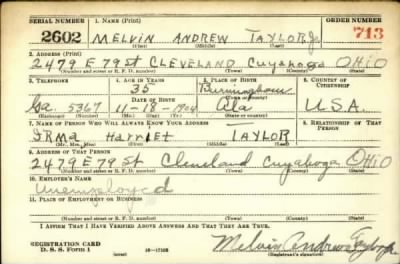 SERIAL NUMBER 1. NAME (Print) ORDER NUMBER
2602 MELVIN ANDREW TAYLOR Jr 713
(First) (Middle) (Last)
2. ADDRESS (Print)
2479 E 79 St CLEVELAND Cuyahoga OHIO
(Number and street or R. F. D. number) (Town) (County) (State)
3. TELEPHONE 4. AGE IN YEARS 5. PLACE OF BIRTH 6. COUNTRY OF CITIZENSHIP
35 Birmingham
(Town or county)
DATE OF BIRTH
Ga 5367 11-18-1904 Ala U.S.A.
(Exchange) (Number) (Mo.) (Day) (Yr.) (State or country)
7. NAME OF PERSON WHO WILL ALWAYS KNOW YOUR ADDRESS 8. RELATIONSHIP OF THAT PERSON
IRMA Harriet TAYLOR
(Mr., Mrs., Miss) (First) (Middle) (Last)
9. ADDRESS OF THAT PERSON
2479 E 79 St Cleveland Cuyahoga OHIO
(Number and street or R. F. D. number) (Town) (County) (State)
10. EMPLOYER'S NAME
Unemployed
11. PLACE OF EMPLOYMENT OR BUSINESS
(Number and street or R. F. D. number) (Town) (County) (State)
I AFFIRM THAT I HAVE VERIFIED ABOVE ANSWERS AND THAT THEY ARE TRUE.
REGISTRATION CARD
D. S. S. Form 1 Melvin Andrew Taylor Jr
(Registrant's signature)